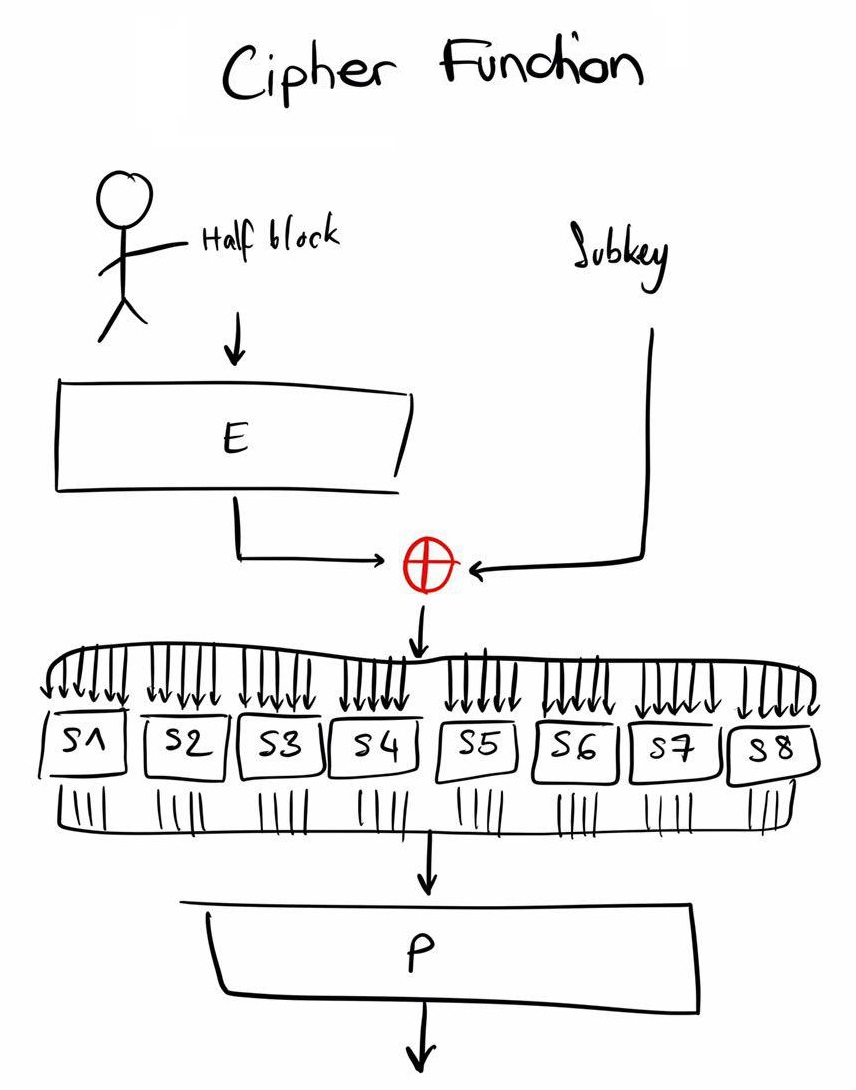 Cipher Function
Half block
Subkey
E
S1 S2 S3 S4 S5 S6 S7 S8
P